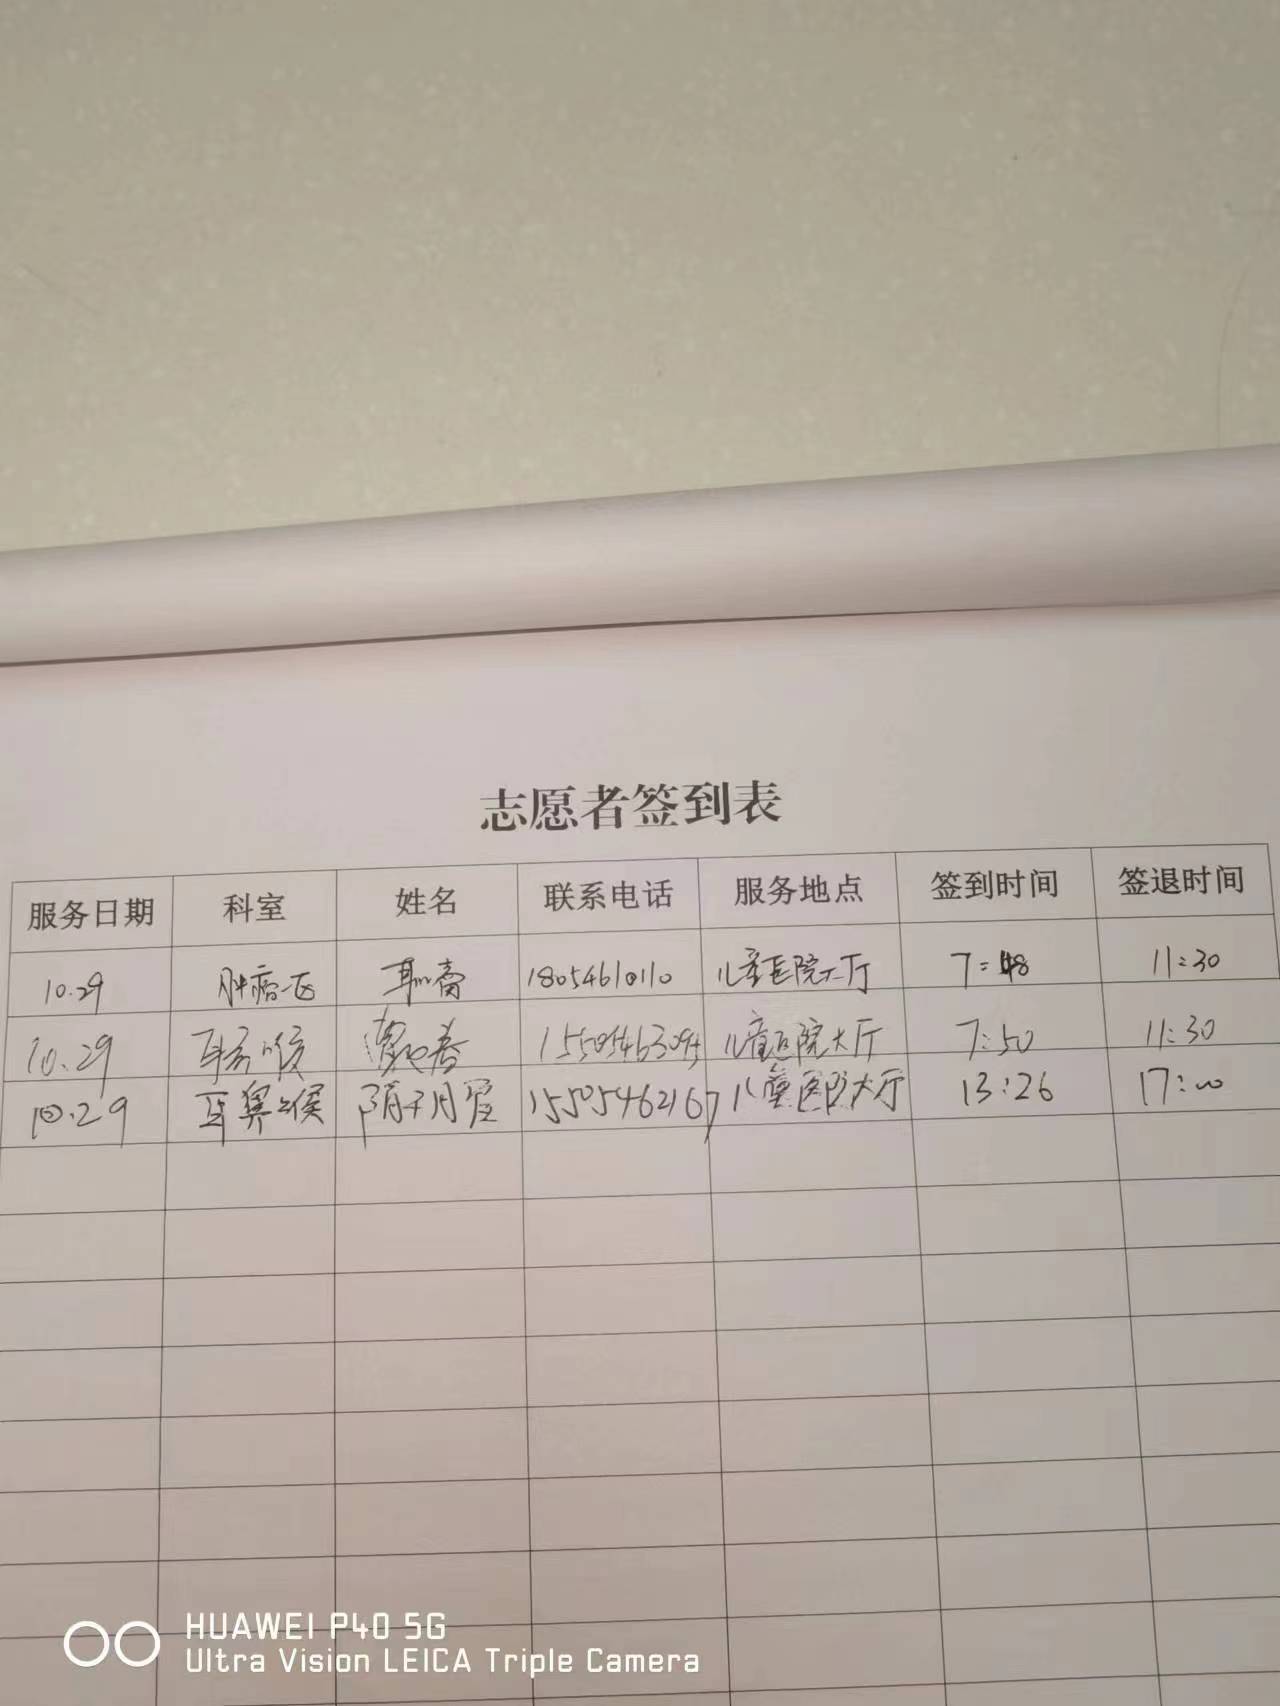 志愿者签到表
服务日期 科室 姓名 联系电话 服务地点 签到时间 签退时间
10.29 肿瘤一区 18054610110 儿童医院大厅 7:48 11:30
10.29 儿童医院大厅 7:50 11:30
10.29 耳鼻喉 15505462167 儿童医院大厅 13:26 17:00
HUAWEI P40 5G
Ultra Vision LEICA Triple Camera